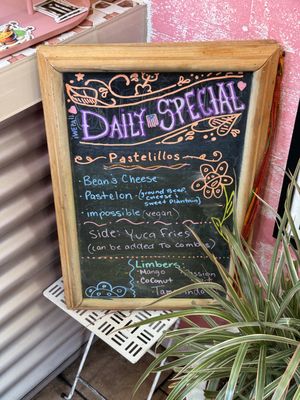 ¡WEPA!
DAILY SPECIAL
Pastelillos
• Bean & Cheese
• Pastelon - (ground Beef, cheese & sweet Plantain)
• impossible (vegan)
Side: Yuca Fries
(can be added To combo)
Limbers:
• Mango
• Coconut